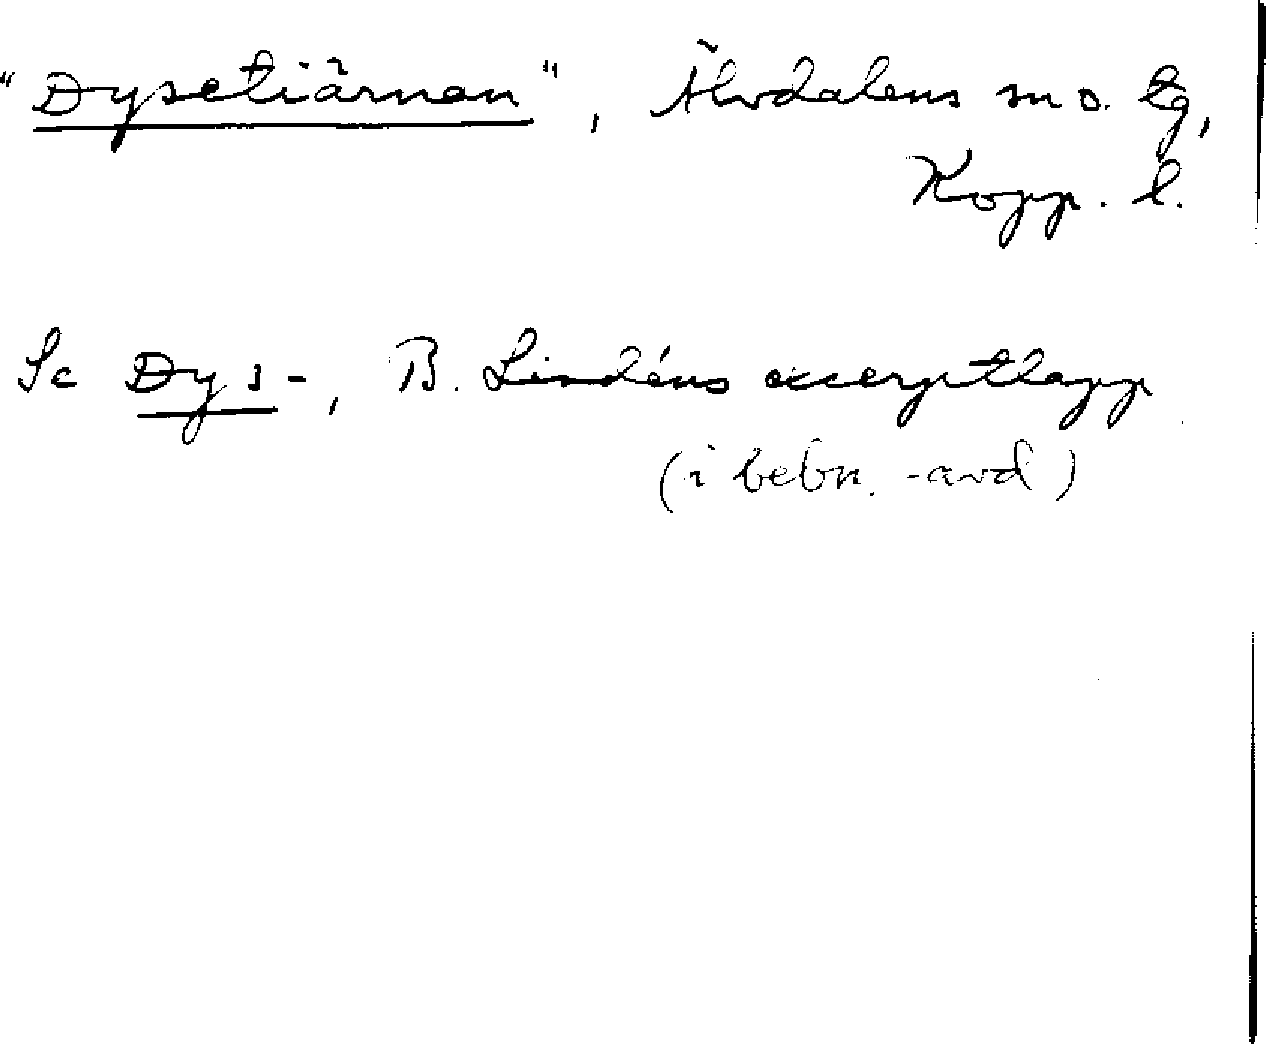 "Dysetiärnan", Älvdalens sn o. tg,
Kopp. l.
Se Dys-, B. Lindéns excerptlapp
(i bebn.-avd)